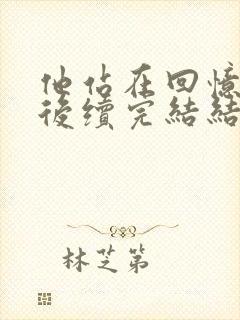 他佔在回憶
後續完結結
林芝第